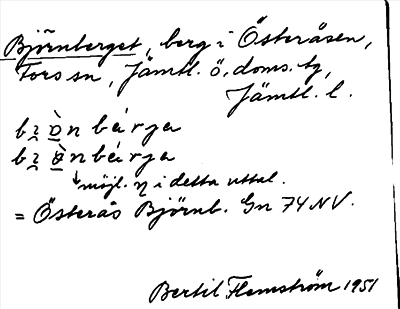 Björnberget, berg i Österåsen,
Fors sn, Jämtl. ö. doms. tg,
Jämtl. l.
bɀ ɷ̀n bárɟa
bɀ ɵ̀n bárɟa
↓ möjl. η i detta uttal.
= Österås Björnb. Gn 74 NV.
Bertil Flemström 1951